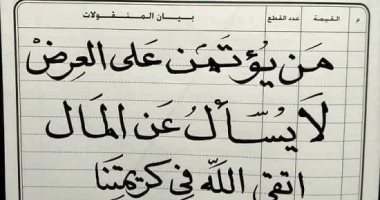 م القيمة عدد القطع بيان المنقولات
مَن يُؤتَمَن عَلى العِرضْ
لَا يُسأَلُ عَن المَال
اتقى اللَّه في كريمتِنَا